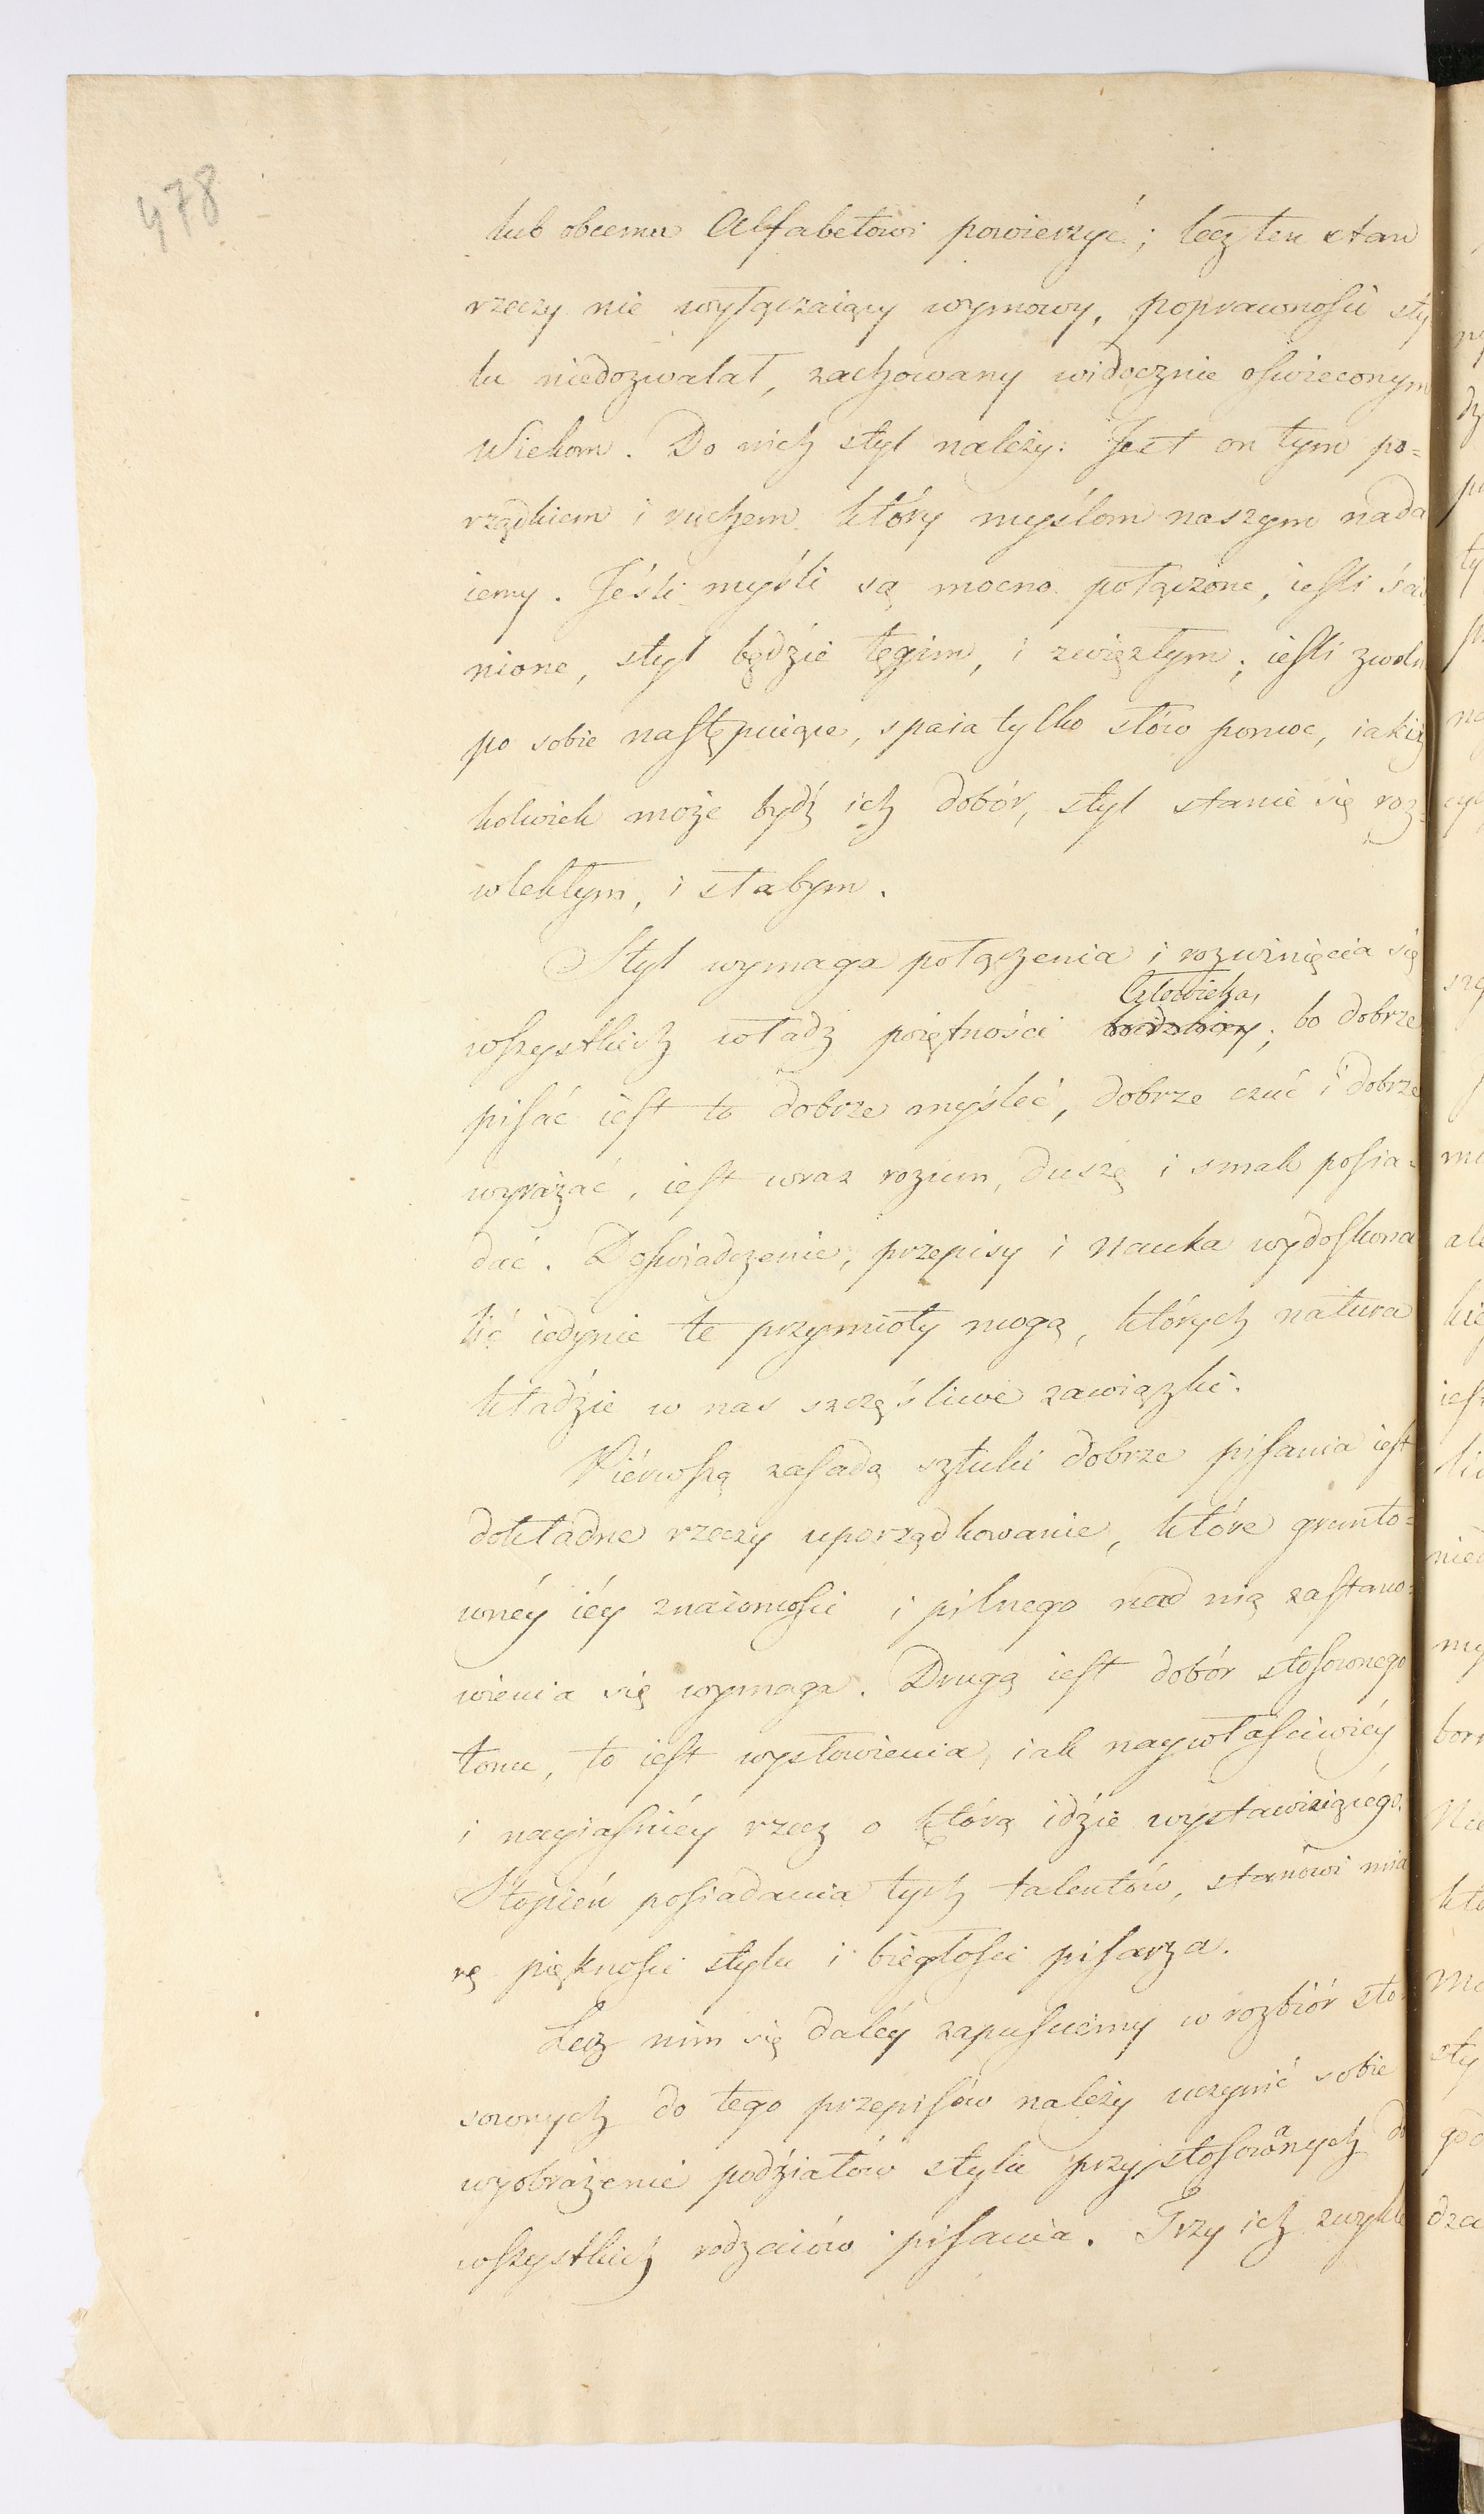 478
lub obcemu Alfabetowi powierzyć; lecz ten stan
rzeczy nie wyłączaiący wymowy, poprawności sty
lu niedozwalał, zachowany widocznie oświeconym
Wiekom. Do nich styl należy: Jest on tym po=
rządkiem i ruchem który myślom naszym nada
iemy. Jeśli myśli są mocno połączone, ieśli ścis
nione, styl będzie tęgim, i zwięzłym; ieśli zwoln
po sobie następuiące, spaia tylko słów pomoc, iakiż
kolwiek może bydź ich dobór, styl stanie się roz=
wlekłym, i słabym.
Styl wymaga połączenia i rozwinięcia się
Człowieka,
wszystkich władz poiętności; bo dobrze
pisać iest to dobrze myśleć, dobrze czuć i dobrze
wyrażać, iest wraz rozum, duszę i smak posia=
dać. Doświadczenie, przepisy i Nauka wydoskona
lić iedynie te przymioty mogą, których natura
kładzie w nas szczęśliwe zawiązki.
Piérwszą zasadą sztuki dobrze pisania iest
dokładne rzeczy uporządkowanie, które grunto=
wnéy iéy znaiomości i pilnego nad nią zastano=
wienia się wymaga. Drugą iest dobór stosownego
tonu, to iest wysłowienia, iak naywłaściwiéy
i nayiaśniéy rzecz o którą idzie wystawiaiącégo.
Stopień posiadania tych talentów, stanowi mia
rę piękności stylu i biegłości pisarza.
Lecz nim się daléy zapuścimy w rozbiór sto
sownych do tego przepisów należy uczynić sobie
wyobrażenie podziałów stylu przystosowanych do
wszystkich rodzaiów pisania. Trzy ich zwykle